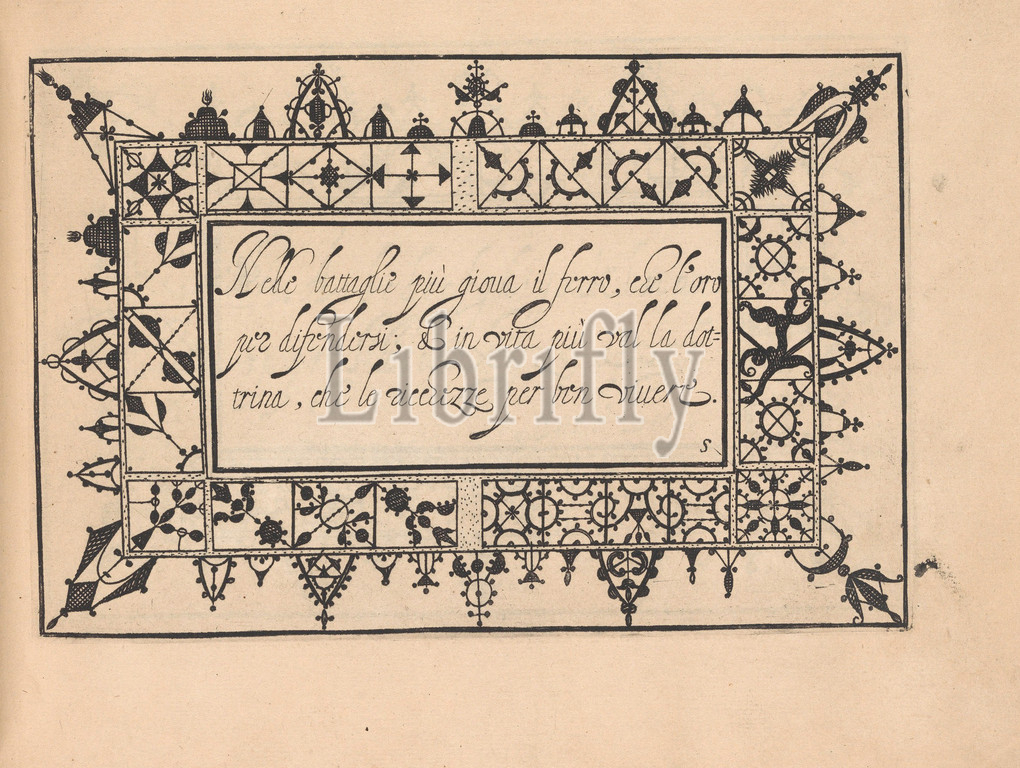 Nelle battaglie più gioua il ferro, che l'oro
per difendersi; & in vita più val la dot-
trina, che le ricchezze per ben viuere.
S
Librifly